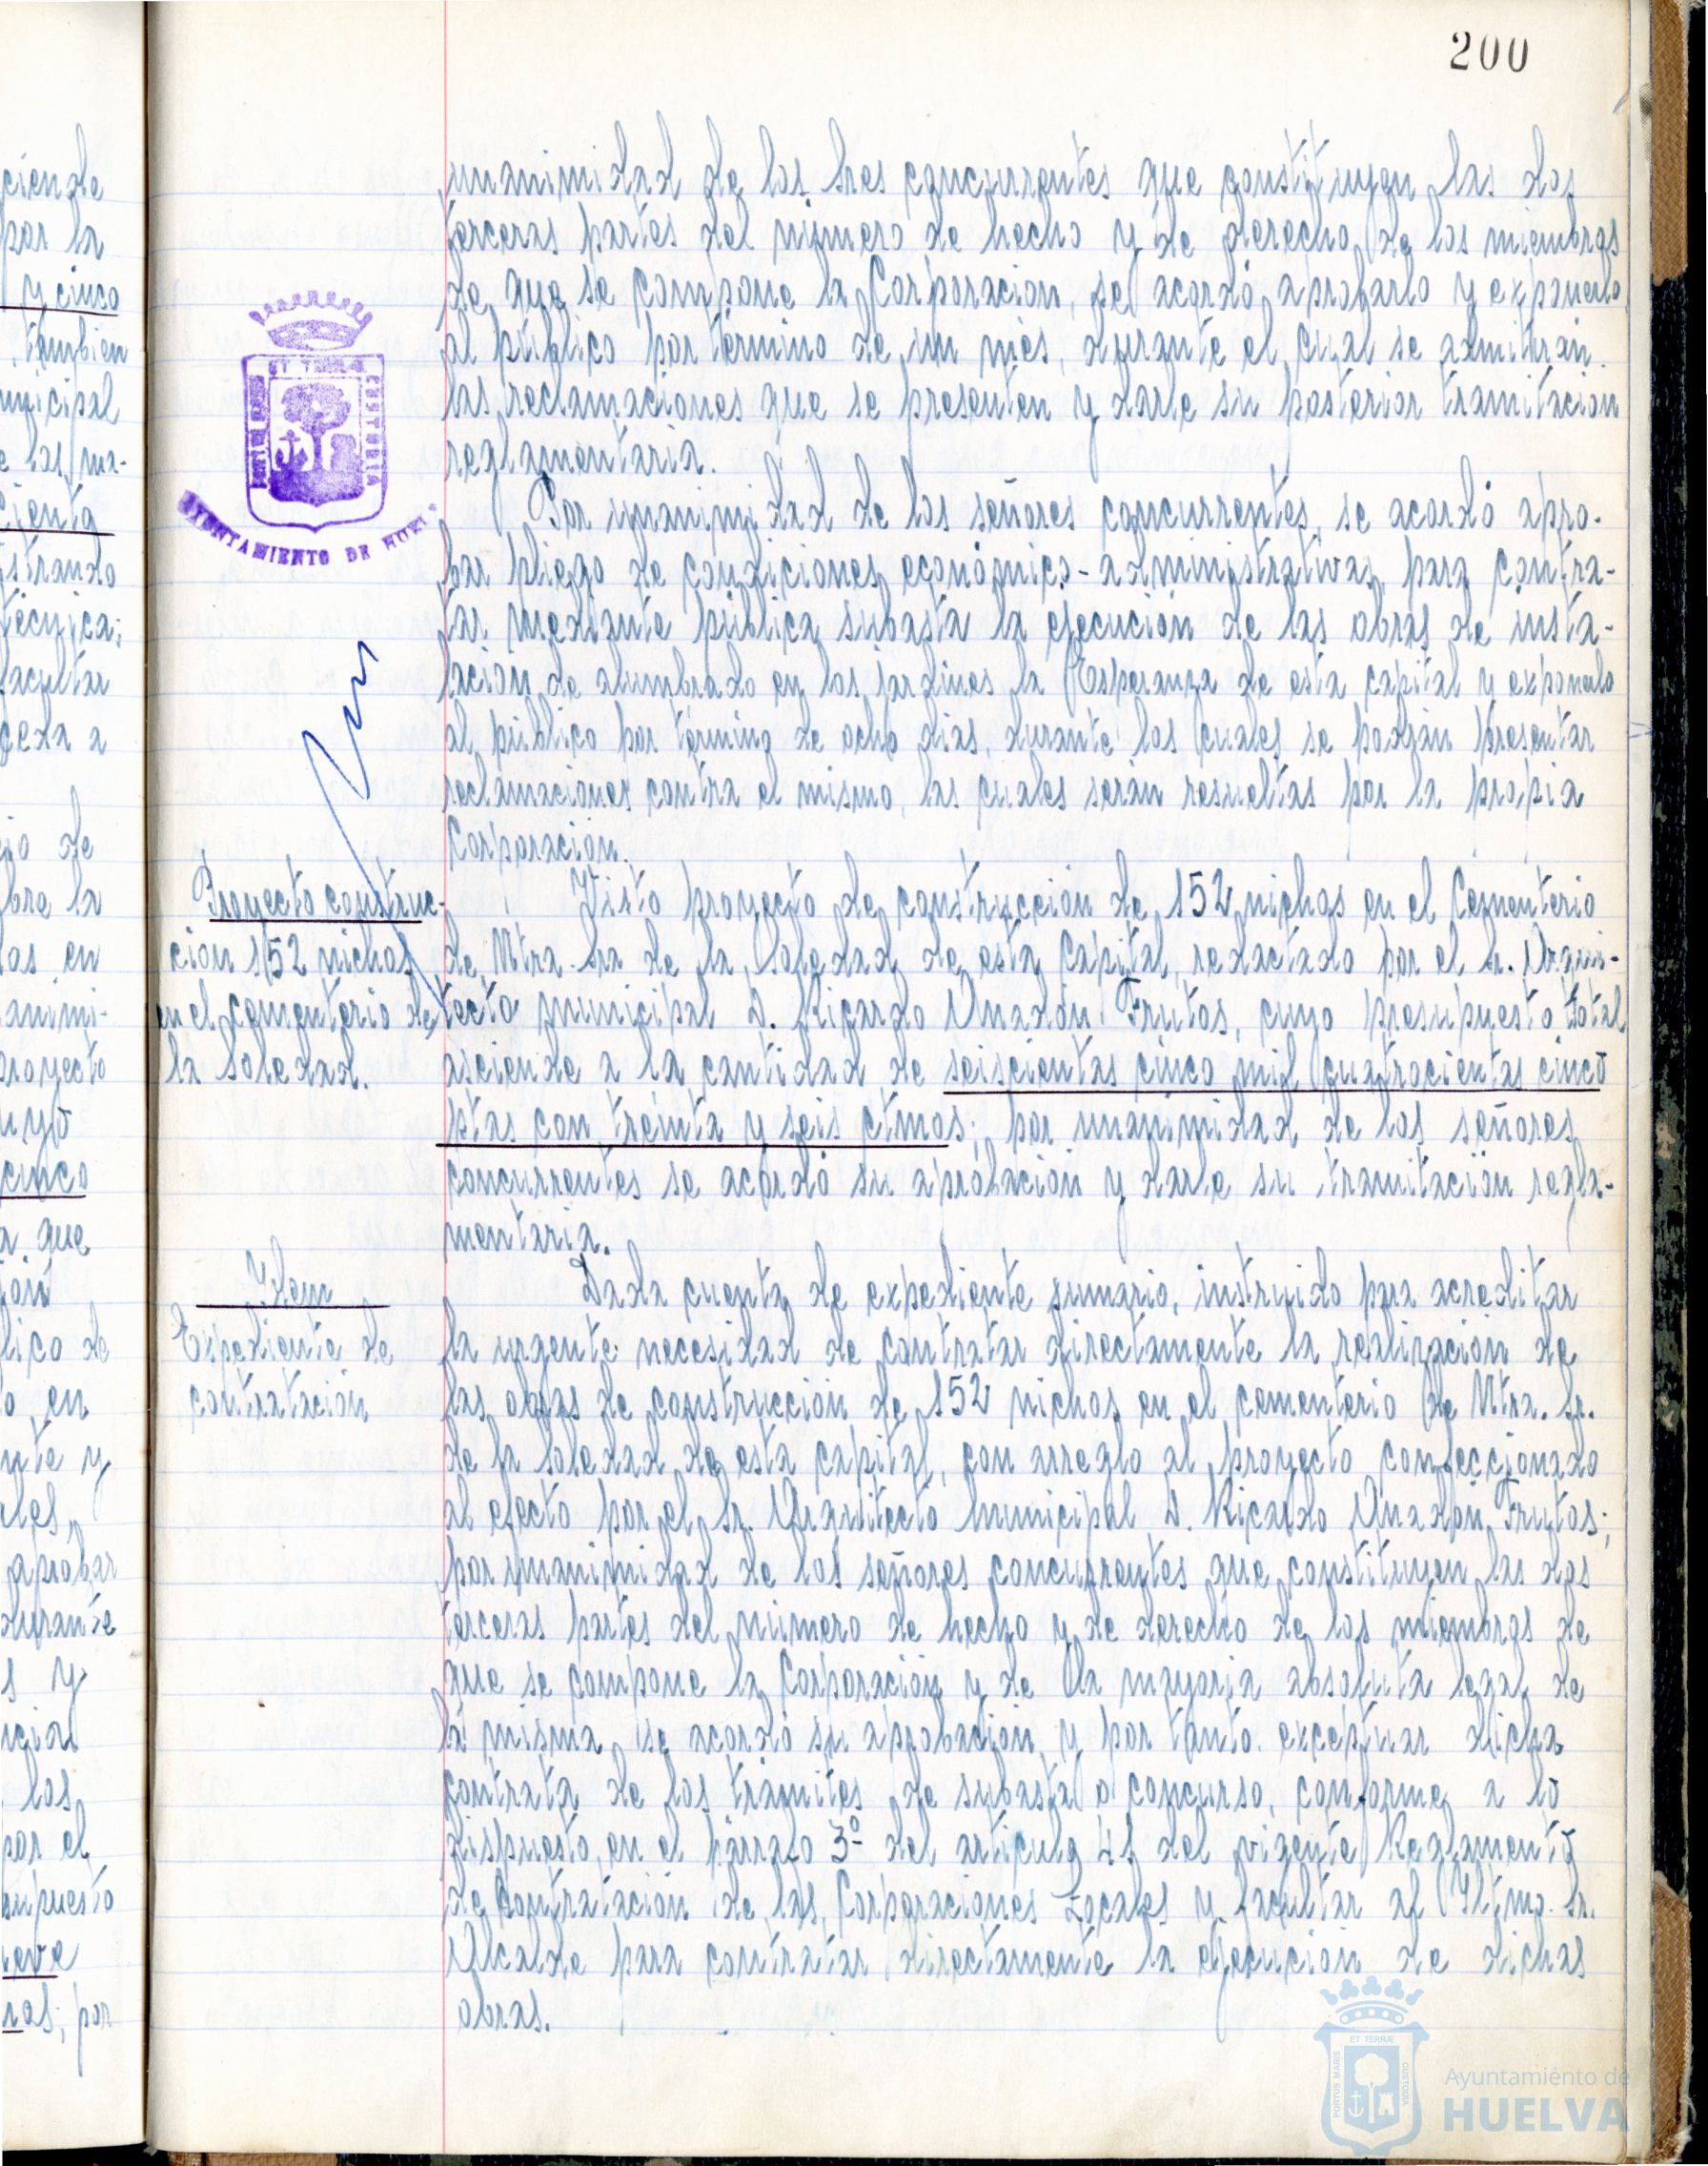 200
unanimidad de los Sres concurrentes que constituyen las dos
terceras partes del número de hecho y de derecho de los miembros
de que se compone la Corporación, se acordó aprobarlo y exponerlo
al público por término de un mes, durante el cual se admitirán
las reclamaciones que se presenten y darle su posterior tramitación
reglamentaria.
Por unanimidad de los señores concurrentes, se acordó apro-
bar pliego de condiciones económico-administrativas para contra-
tar mediante pública subasta la ejecución de las obras de insta-
lación de alumbrado en los jardines la Esperanza de esta capital y exponerlo
al público por término de ocho días, durante los cuales se podrán presentar
reclamaciones contra el mismo, las cuales serán resueltas por la propia
Corporación.
Proyecto construc-
ción 152 nichos
en el cementerio de
la Soledad.
Visto proyecto de construcción de 152 nichos en el Cementerio
de Ntra. Sra de la Soledad de esta Capital, redactado por el Sr. Arqui-
tecto municipal D. Ricardo Anadón Frutos, cuyo presupuesto total
asciende a la cantidad de seiscientas cinco mil cuatrocientas cinco
ptas con treinta y seis ctmos; por unanimidad de los señores
concurrentes se acordó su aprobación y darle su tramitación regla-
mentaria.
Idem
Expediente de
contratación
Dada cuenta de expediente sumario, instruido para acreditar
la urgente necesidad de contratar directamente la realización de
las obras de construcción de 152 nichos en el cementerio de Ntra. Sr.
de la Soledad de esta capital, con arreglo al proyecto confeccionado
al efecto por el Sr. Arquitecto Municipal D. Ricardo Anadón Frutos;
por unanimidad de los señores concurrentes que constituyen las dos
terceras partes del número de hecho y de derecho de los miembros de
que se compone la Corporación y de la mayoria absoluta legal de
la misma, se acordó su aprobación y por tanto exceptuar dicha
contrata de los trámites de subasta o concurso, conforme a lo
dispuesto en el párrafo 3º del articulo 41 del vigente Reglamento
de Contratación de las Corporaciones Locales y facultar al Iltmo. Sr.
Alcalde para contratar directamente la ejecución de dichas
obras.
AYUNTAMIENTO DE HUELVA
ET TERRAE
CUSTODIA
PORTUS MARIS
Ayuntamiento de
HUELVA